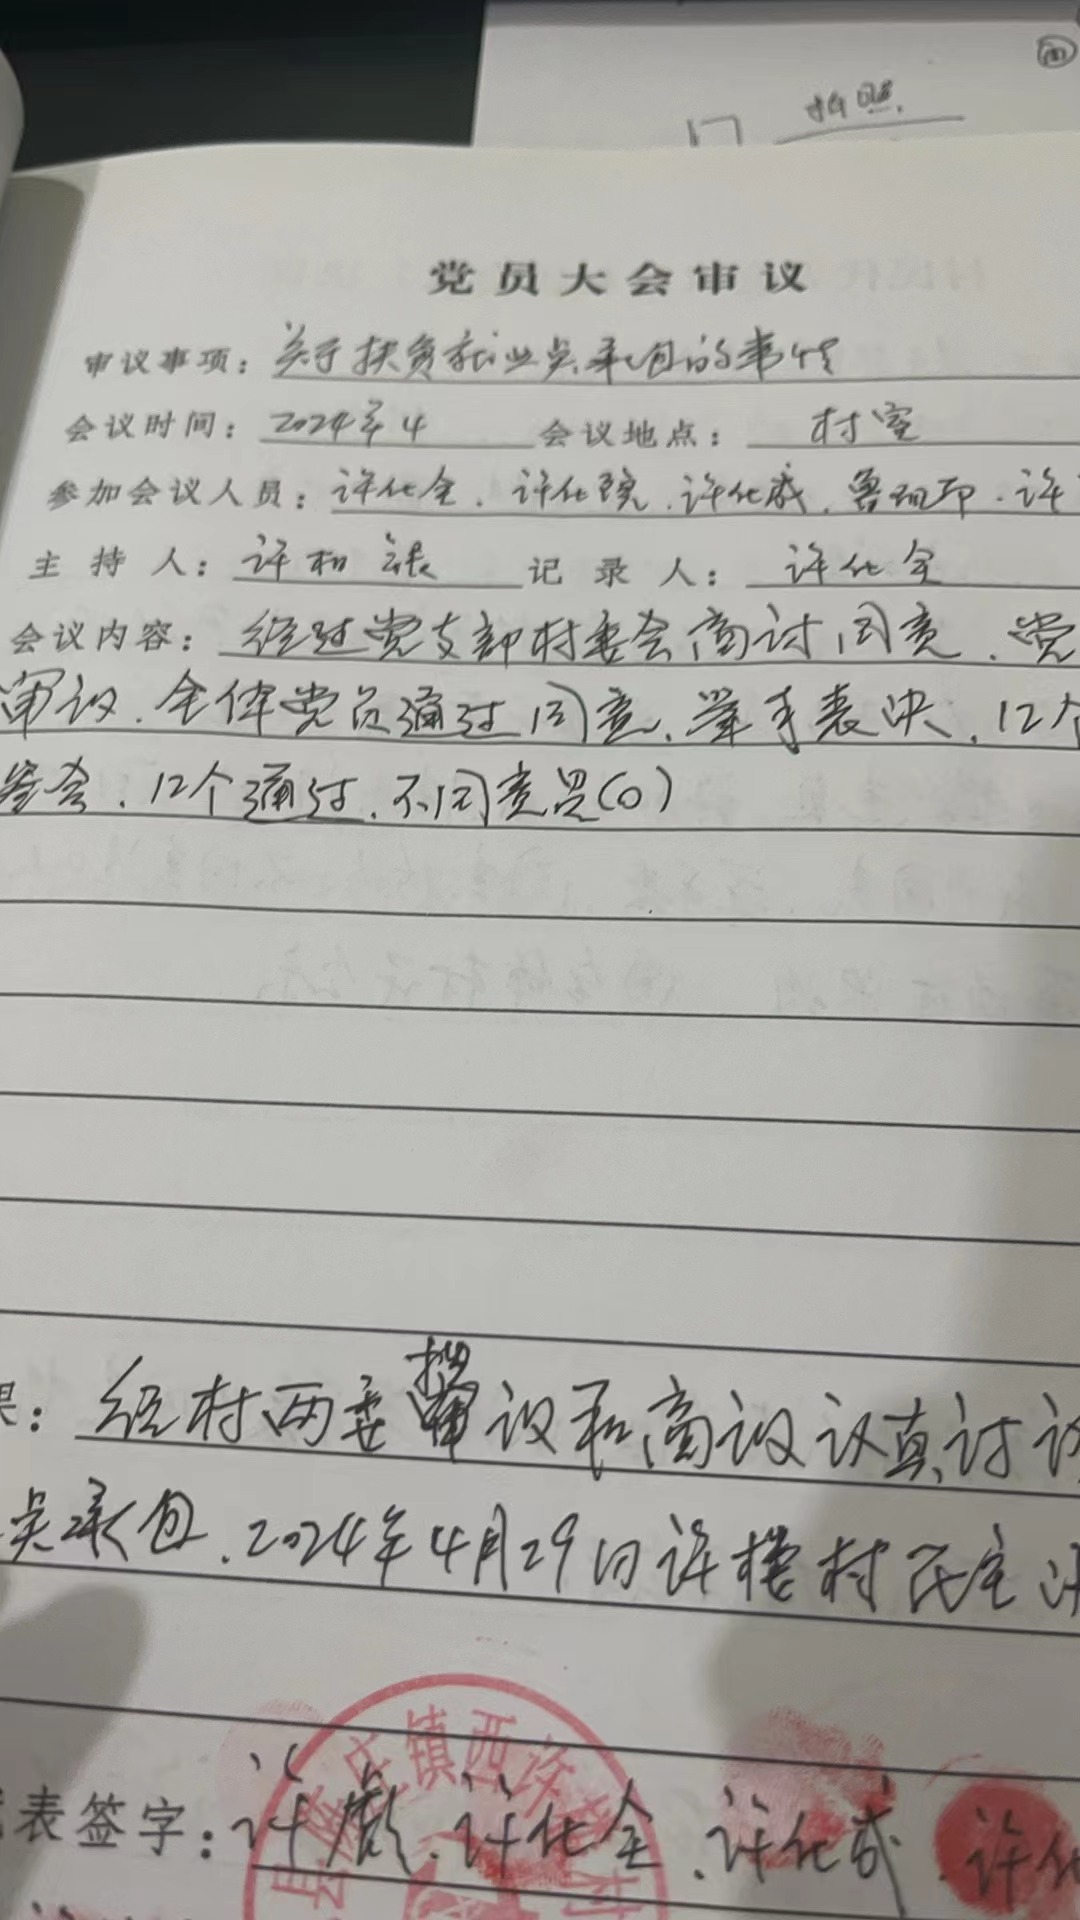 拍照
党员大会审议
审议事项：关于扶贫就业点承包的事情
会议时间：2024年4 会议地点：村室
参加会议人员：许化全、许化院、许化成、鲁 印、许
主持人：许相 记录人：许化全
会议内容：经过党支部村委会商讨同意、党
审议、全体党员通过同意、举手表决、12个
参会、12个通过、不同意见(0)
果：经村两委 议和商议认真讨论
点承包、2024年4月29日许楼村民主
庄镇西许楼村
表签字：许 、许化全、许化成、许化